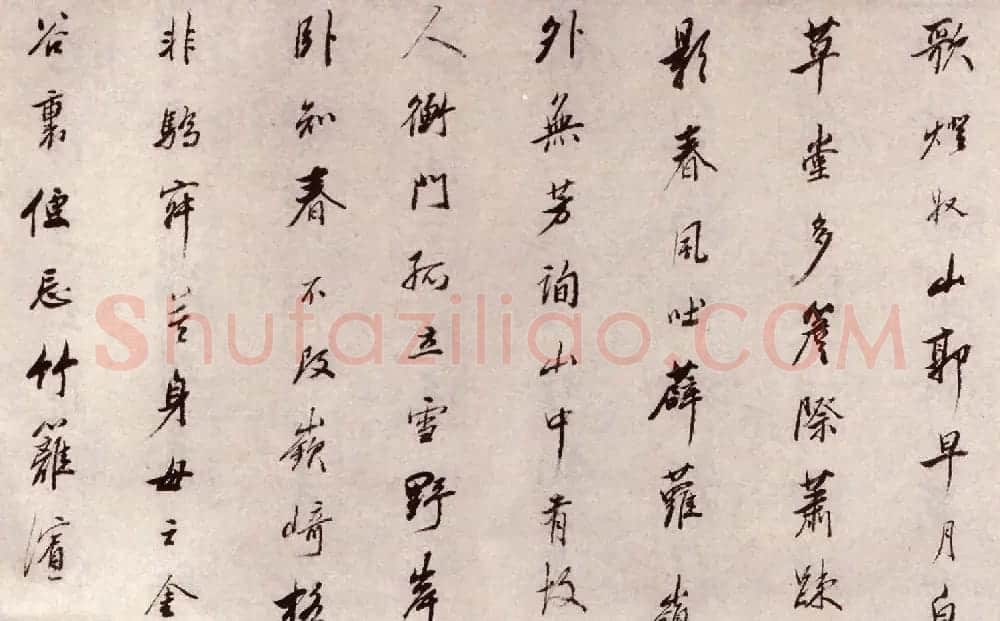 歌燈收山郭早月白
草堂多簷際蕭疎
影春風吐薜蘿嶺
外無芳詢山中有故
人衡門孤立雪野岸
卧知春不改嶔崎格
非驕寧苦身毋云金
谷裏便忘竹籬濱
Shufaziliao.COM